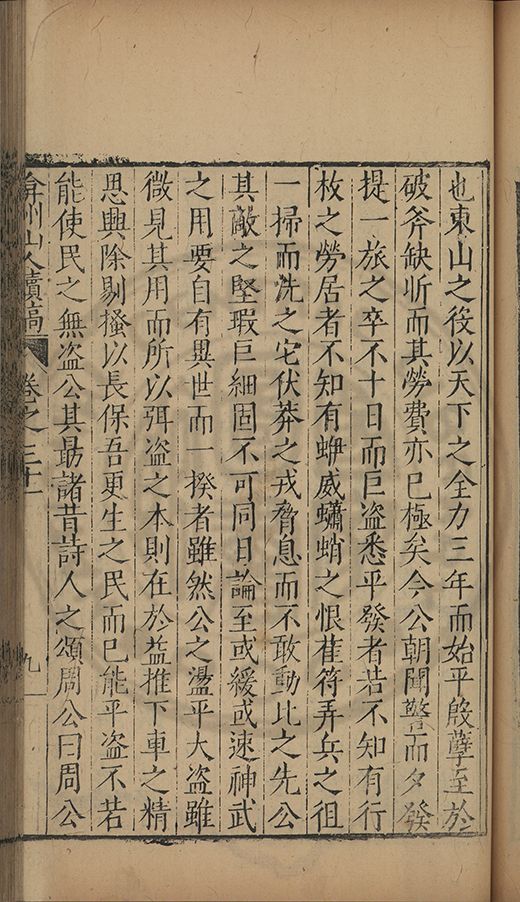 也東山之役以天下之全力三年而始平殷孽至於
破斧缺斨而其勞費亦已極矣今公朝聞警而夕發
提一旅之卒不十日而巨盗悉平發者若不知有行
枚之勞居者不知有蛜威蠨蛸之恨萑苻弄兵之徂
一掃而洗之宅伏莽之戎脅息而不敢動比之先公
其敵之堅瑕巨細固不可同日論至或緩或速神武
之用要自有異世而一揆者雖然公之盪平大盗雖
微見其用而所以弭盗之本則在於益推下車之精
思興除剔搔以長保吾更生之民而已能平盗不若
能使民之無盗公其朂諸昔詩人之頌周公曰周公
弇州山人續稿
卷之三十
九